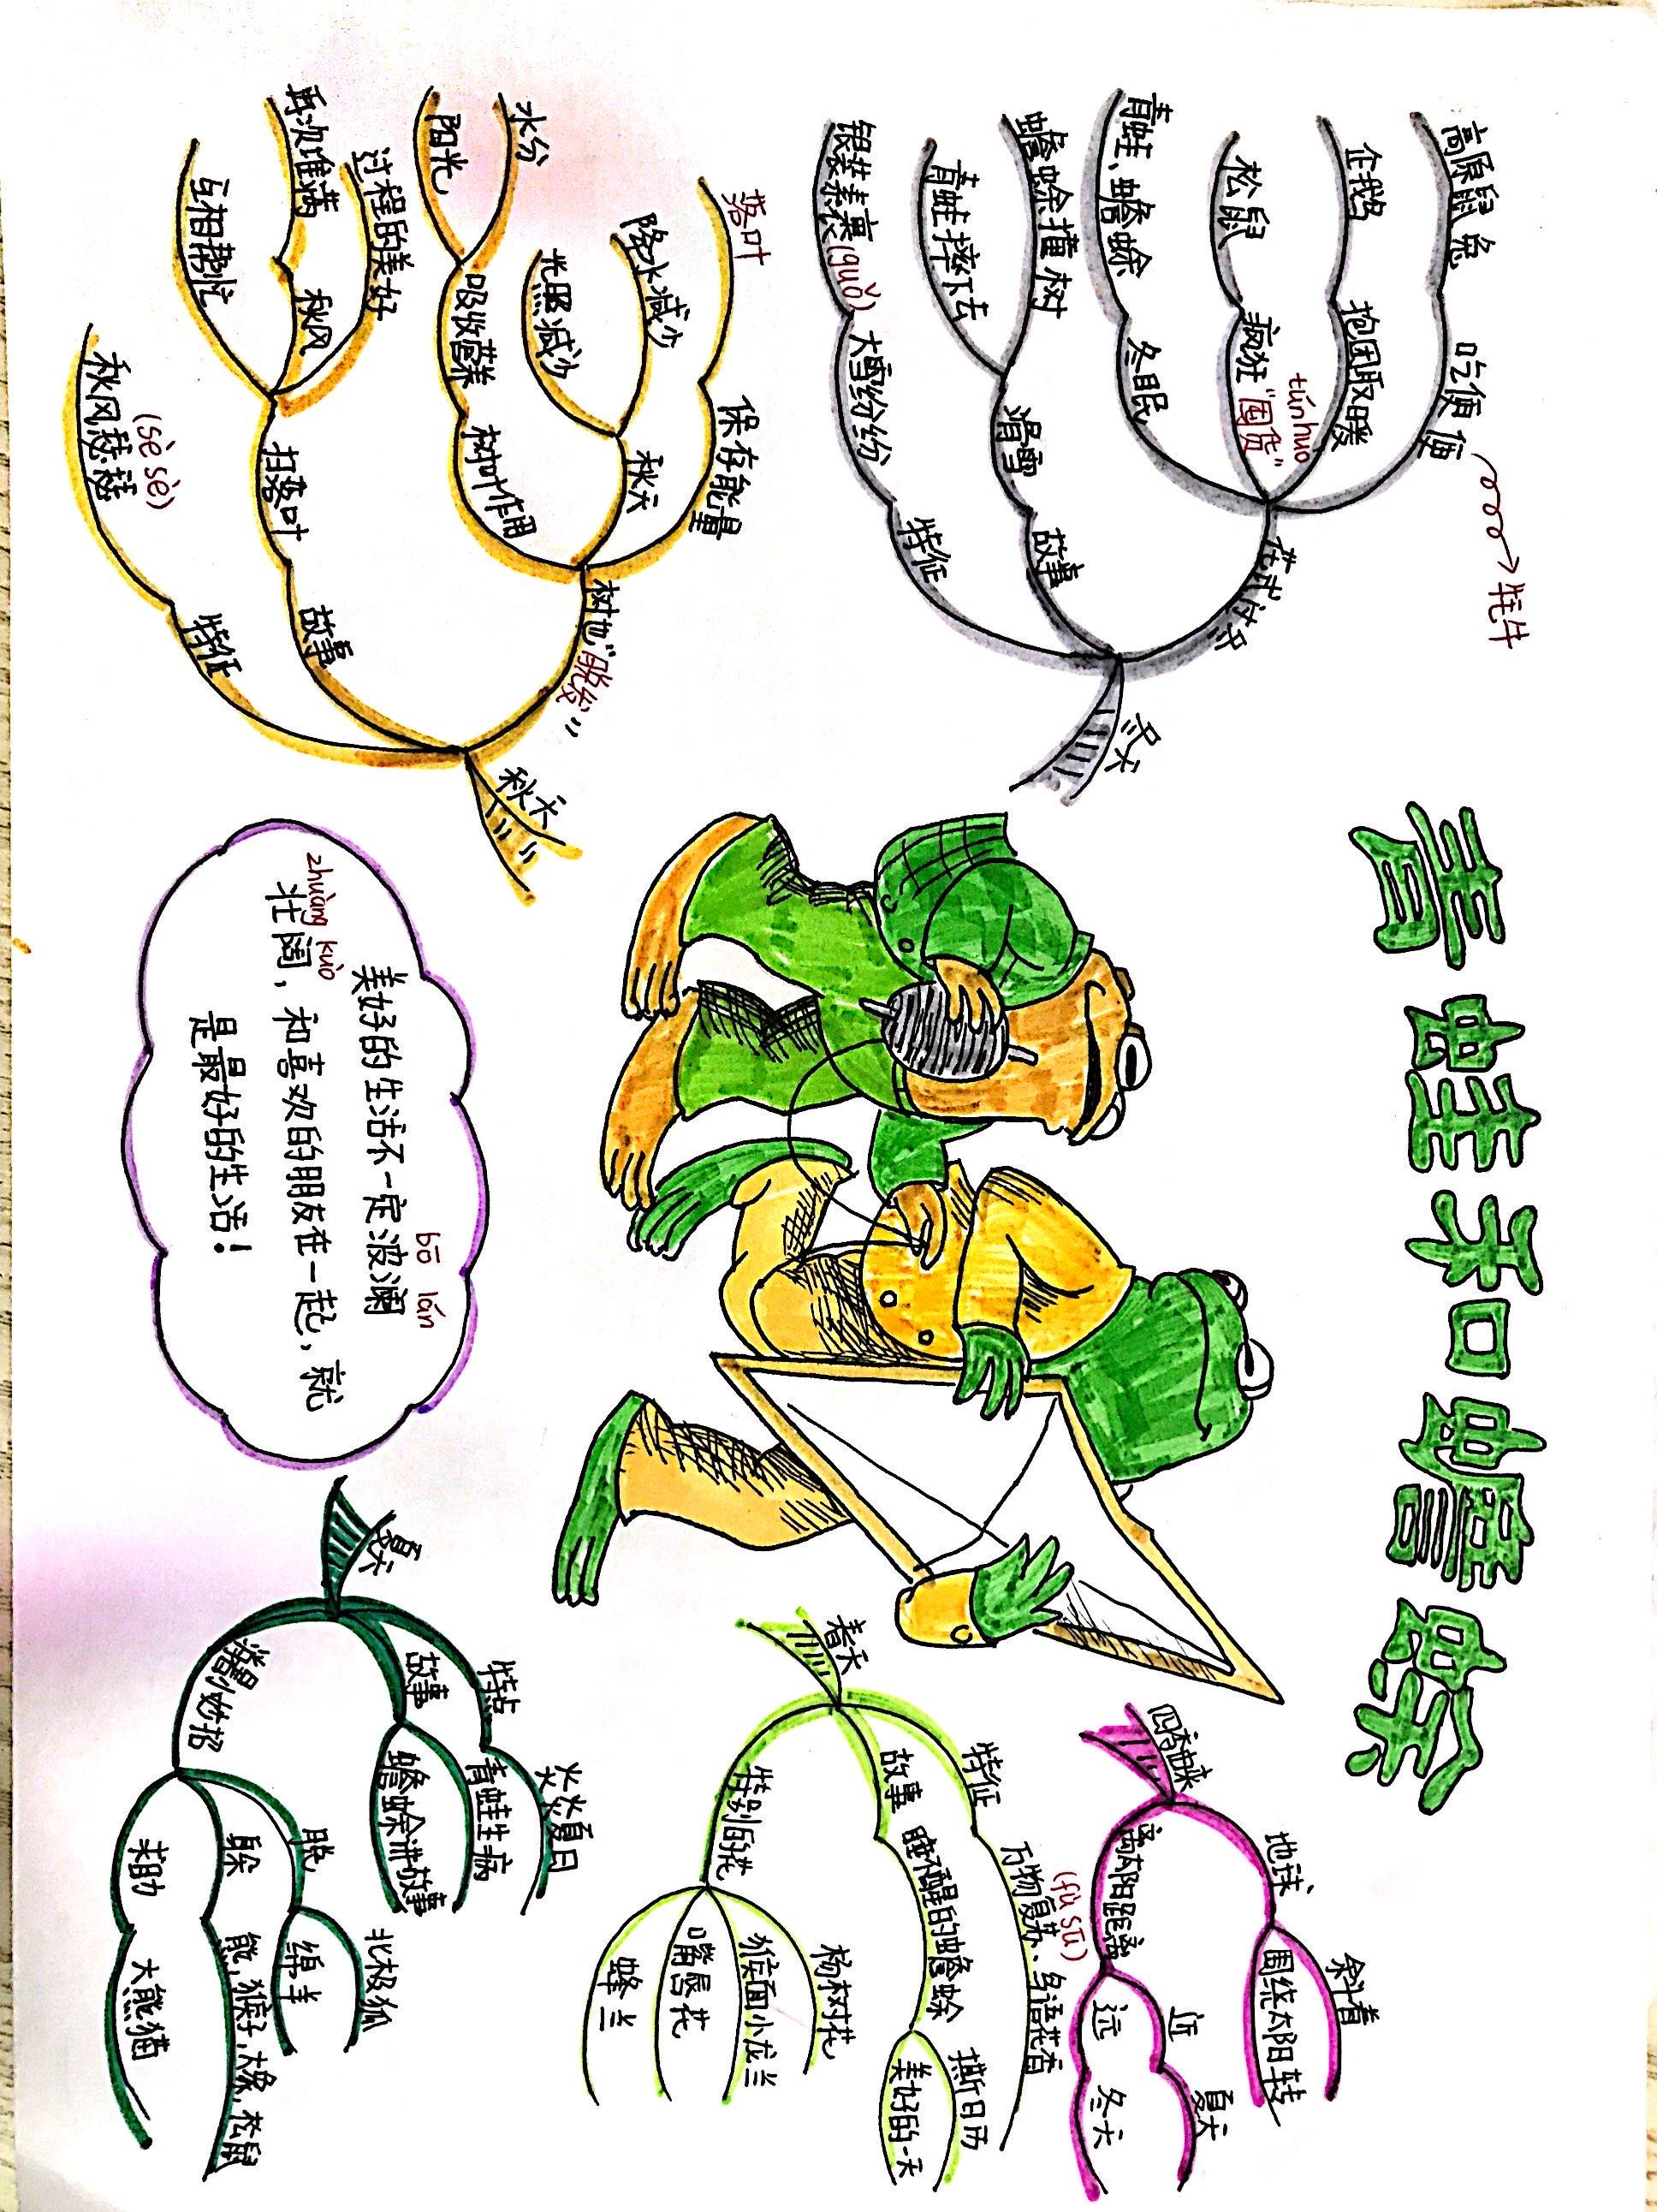 青蛙和蟾蜍
四季由来
地球
斜着
围绕太阳转
离太阳距离
近
夏天
远
冬天
春天
特征
万物复苏、鸟语花香
(fù sū)
故事
睡不醒的蟾蜍
撕日历
美好的一天
特别的花
杨树花
猴面小龙兰
嘴唇花
蜂兰
夏天
特点
炎炎夏日
故事
青蛙生病
蟾蜍讲故事
消暑妙招
脱
北极狐
绵羊
躲
熊,猴子,大象,松鼠
求助
大熊猫
美好的生活不一定波澜
bō lán
zhuàng kuò
壮阔，和喜欢的朋友在一起，就
是最好的生活！
秋天
树也“脱发”
保存能量
落叶
秋天
降水减少
光照减少
树叶作用
吸收营养
水分
阳光
故事
扫落叶
过程的美好
秋风
再次堆满
互相帮忙
特征
秋风瑟瑟
(sè sè)
冬天
花式过冬
高原鼠兔
吃便便
牦牛
企鹅
抱团取暖
松鼠
疯狂“囤货”
tún huò
青蛙、蟾蜍
冬眠
故事
滑雪
蟾蜍撞树
青蛙摔下去
特征
银装素裹(guǒ)、大雪纷纷